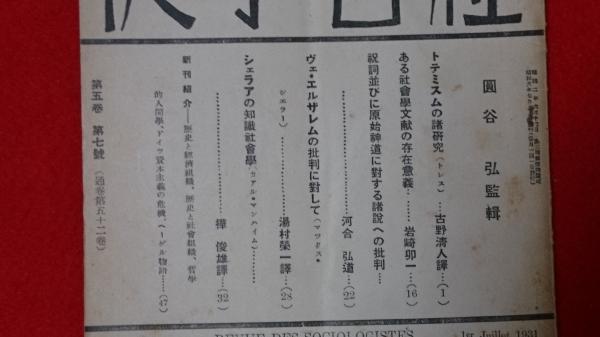 圓谷 弘監輯
トテミスムの諸硏究(トレス)…古野淸人譯…(1)
ある社會學文献の存在意義…岩崎卯一…(16)
祝詞並びに原始神道に對する諸說への批判…
…河合 弘道…(22)
ヴェ・エルザレムの批判に對して(マツクス・
シエラー)…湯村榮一譯…(28)
シェラアの知識社會學(カアル・マンハイム)…
…樺 俊雄譯…(32)
新刊紹介——歷史と經濟組織、歷史と社會組織、哲學
的人間學、ドイツ資本主義の危機、ヘーゲル物語……(47)
第五卷 第七號 (通卷第五十二卷)
REVUE DES SOCIOLOGISTES 1er Juillet 1931